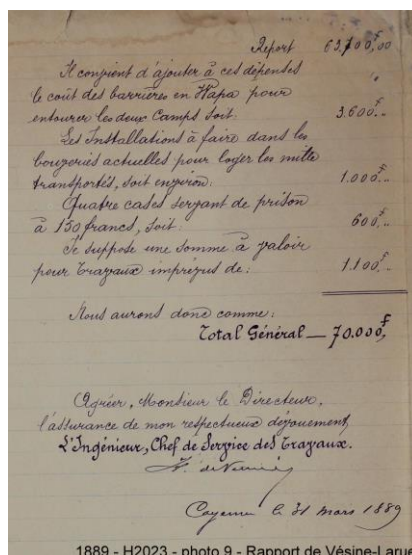 Report 63,700,00
Il convient d'ajouter à ces dépenses
le coût des barrières en Wapa pour
entourer les deux Camps soit: 3.600f..
Les Installations à faire dans les
bouveries actuelles pour loger les mille
transportés, soit environ: 1.000f..
Quatre cases servant de prison
à 150 francs, soit 600f..
Je suppose une somme à valoir
pour travaux imprévus de: 1.100f..
Nous aurons donc comme:
Total Général — 70.000f,
Agréer, Monsieur le Directeur,
l'assurance de mon respectueux dévouement,
L'Ingénieur, Chef de Service des Travaux.
Cayenne le 31 mars 1889
1889 - H2023 - photo 9 - Rapport de Vésine-Larue